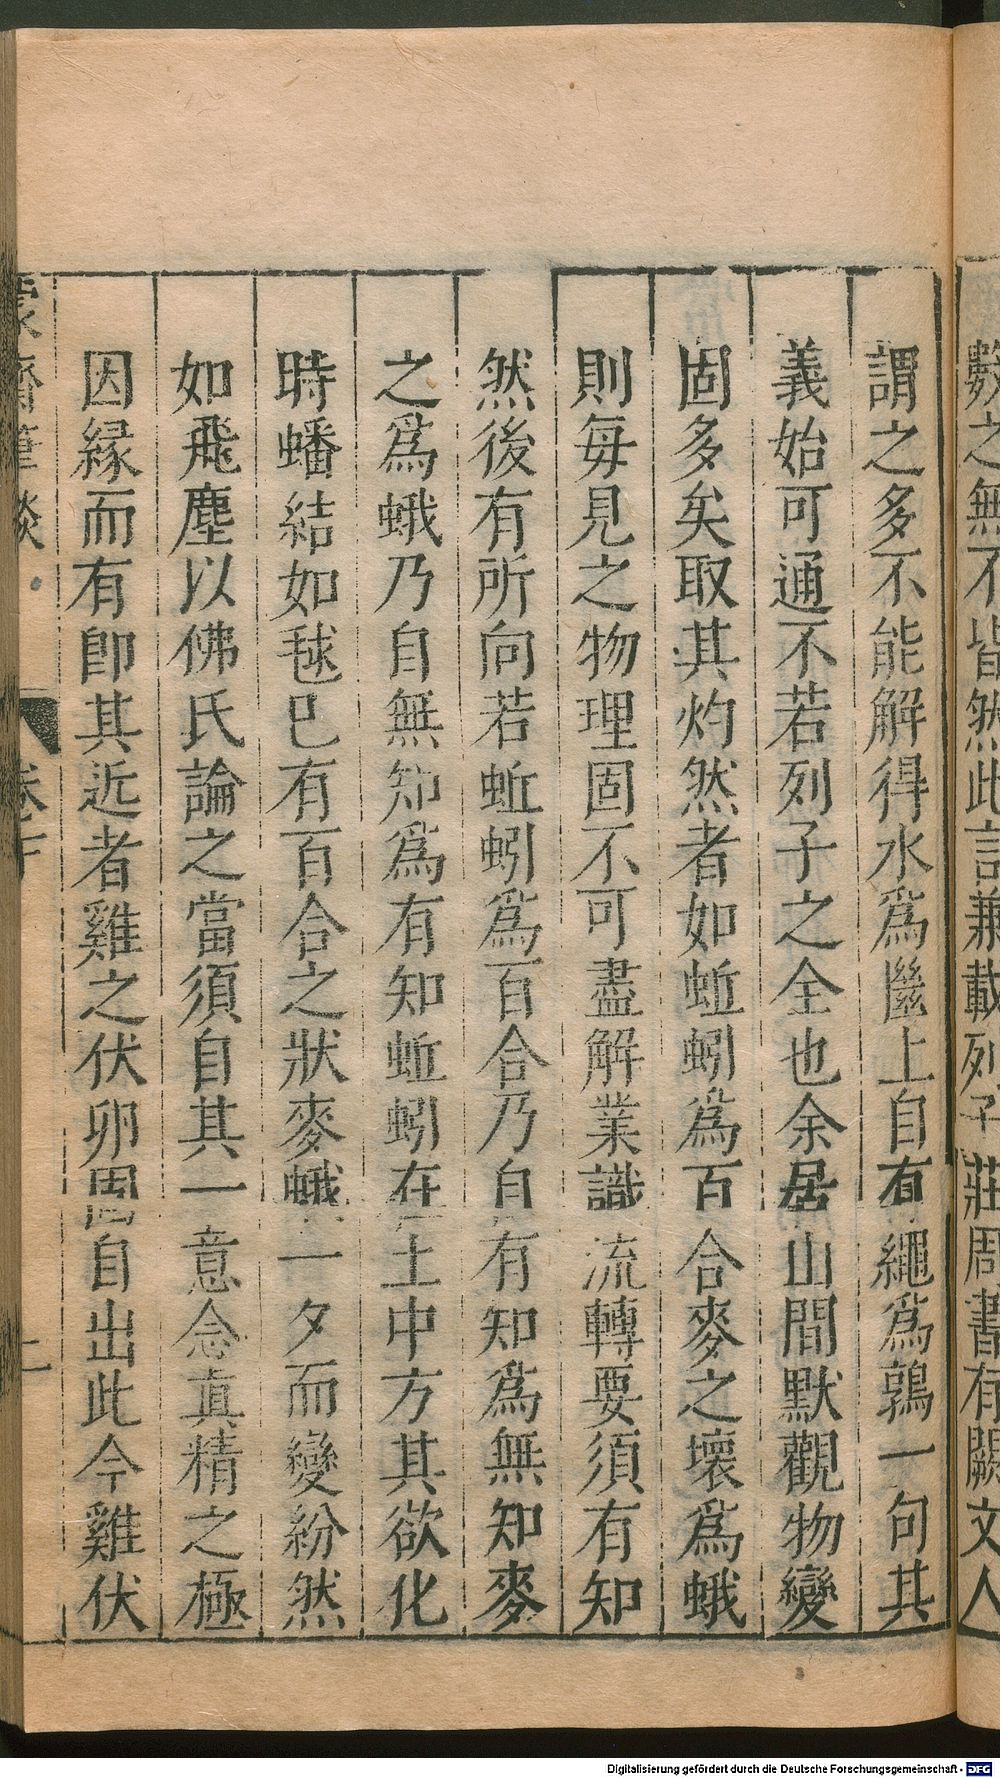 數之無不皆然此言兼載列子莊周書有闕文人
謂之多不能解得水爲㡭上自有繩爲鶉一句其
義始可通不若列子之全也余居山間默觀物變
固多矣取其灼然者如蚯蚓爲百合麥之壞爲蛾
則每見之物理固不可盡解業識流轉要須有知
然後有所向若蚯蚓爲百合乃自有知爲無知麥
之爲蛾乃自無知爲有知蚯蚓在土中方其欲化
時蟠結如毬已有百合之狀麥蛾一夕而變紛然
如飛塵以佛氏論之當須自其一意念真精之極
因緣而有卽其近者雞之伏卵固自出此今雞伏
蒙齋筆談 卷下 二
Digitalisierung gefördert durch die Deutsche Forschungsgemeinschaft - DFG